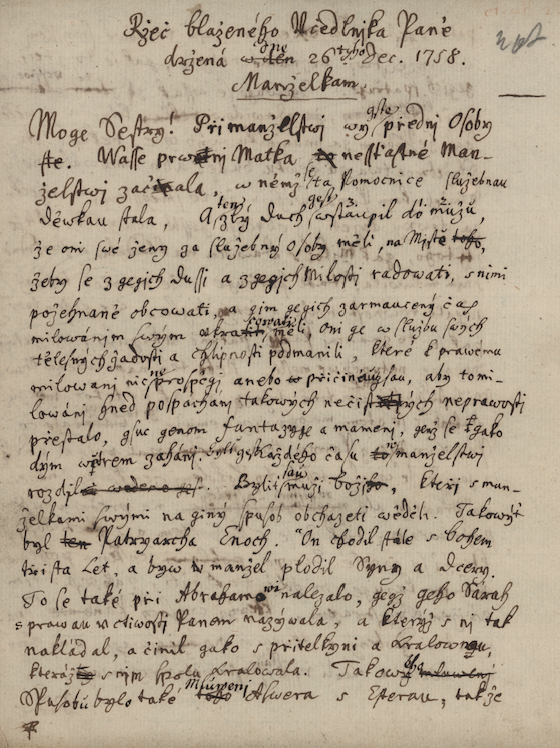 Rzeč blaženého Učedlnjka Páně
držená dne 26tého Dec. 1758.
Manželkám
Moge Sestry! Při manželstwj wy gste přednj Osoby
Wasse prwnj Matka nesťastné Man-
želstwj začala, w němž se ta Pomocnice služebnau
Děwkau stala, A ten zlý duch gest wstaupil do mužů,
že oni swé ženy za služebný Osoby měli, na Mjstě
žeby se z gegich Dussj a z gegich Milosti radowati, s nimi
požehnaně obcowati, a gim gegich zarmaucený čas
milowánjm swým měli, Oni ge w službu swých
tělesných žádostj a chlipnosti podmanili, které k prawému
milowanj nic ne prospěgj anebo přičinau gsau, aby to mi-
lowánj hned po spáchánj takowých nečistých neprawostj
přestalo, gsuc genom fantazyge a mámenj, genž se gako
dým wětrem zahánj. Byli gsau každého času manželstwj
rozdjl Byli sau muži Božj, kteřj s man-
želkami swými na giný spůsob obcházeti wěděli. Takowý
byl Patryarcha Enoch. On chodil stále s bohem
třista Let, a byw w manžel plodil Syny a dcery.
To se také při Abrahamowi nalezalo, gegž geho Sárah
s prawau uctiwostj Pánem nazýwala, a kterýž s nj tak
nakládal, a činil gako s přjtelkynj a Kralownau,
kteráž s njm spolu kralowala. Takowý
Spůsob bylo také Aswera s Esterau, takže